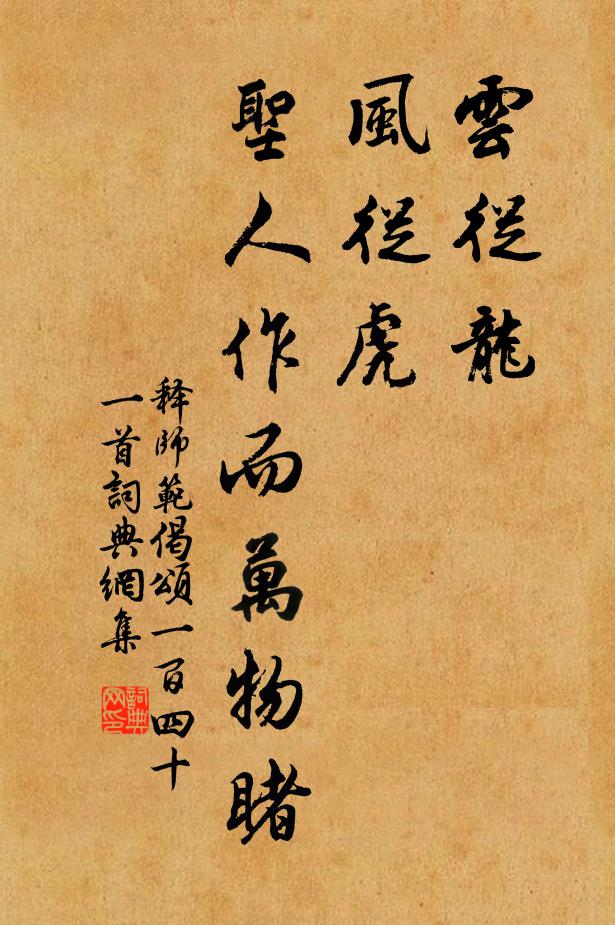 雲從龍
風從虎
聖人作而萬物睹
释師範偈頌一百四十
一首詞典網集
詞典网印